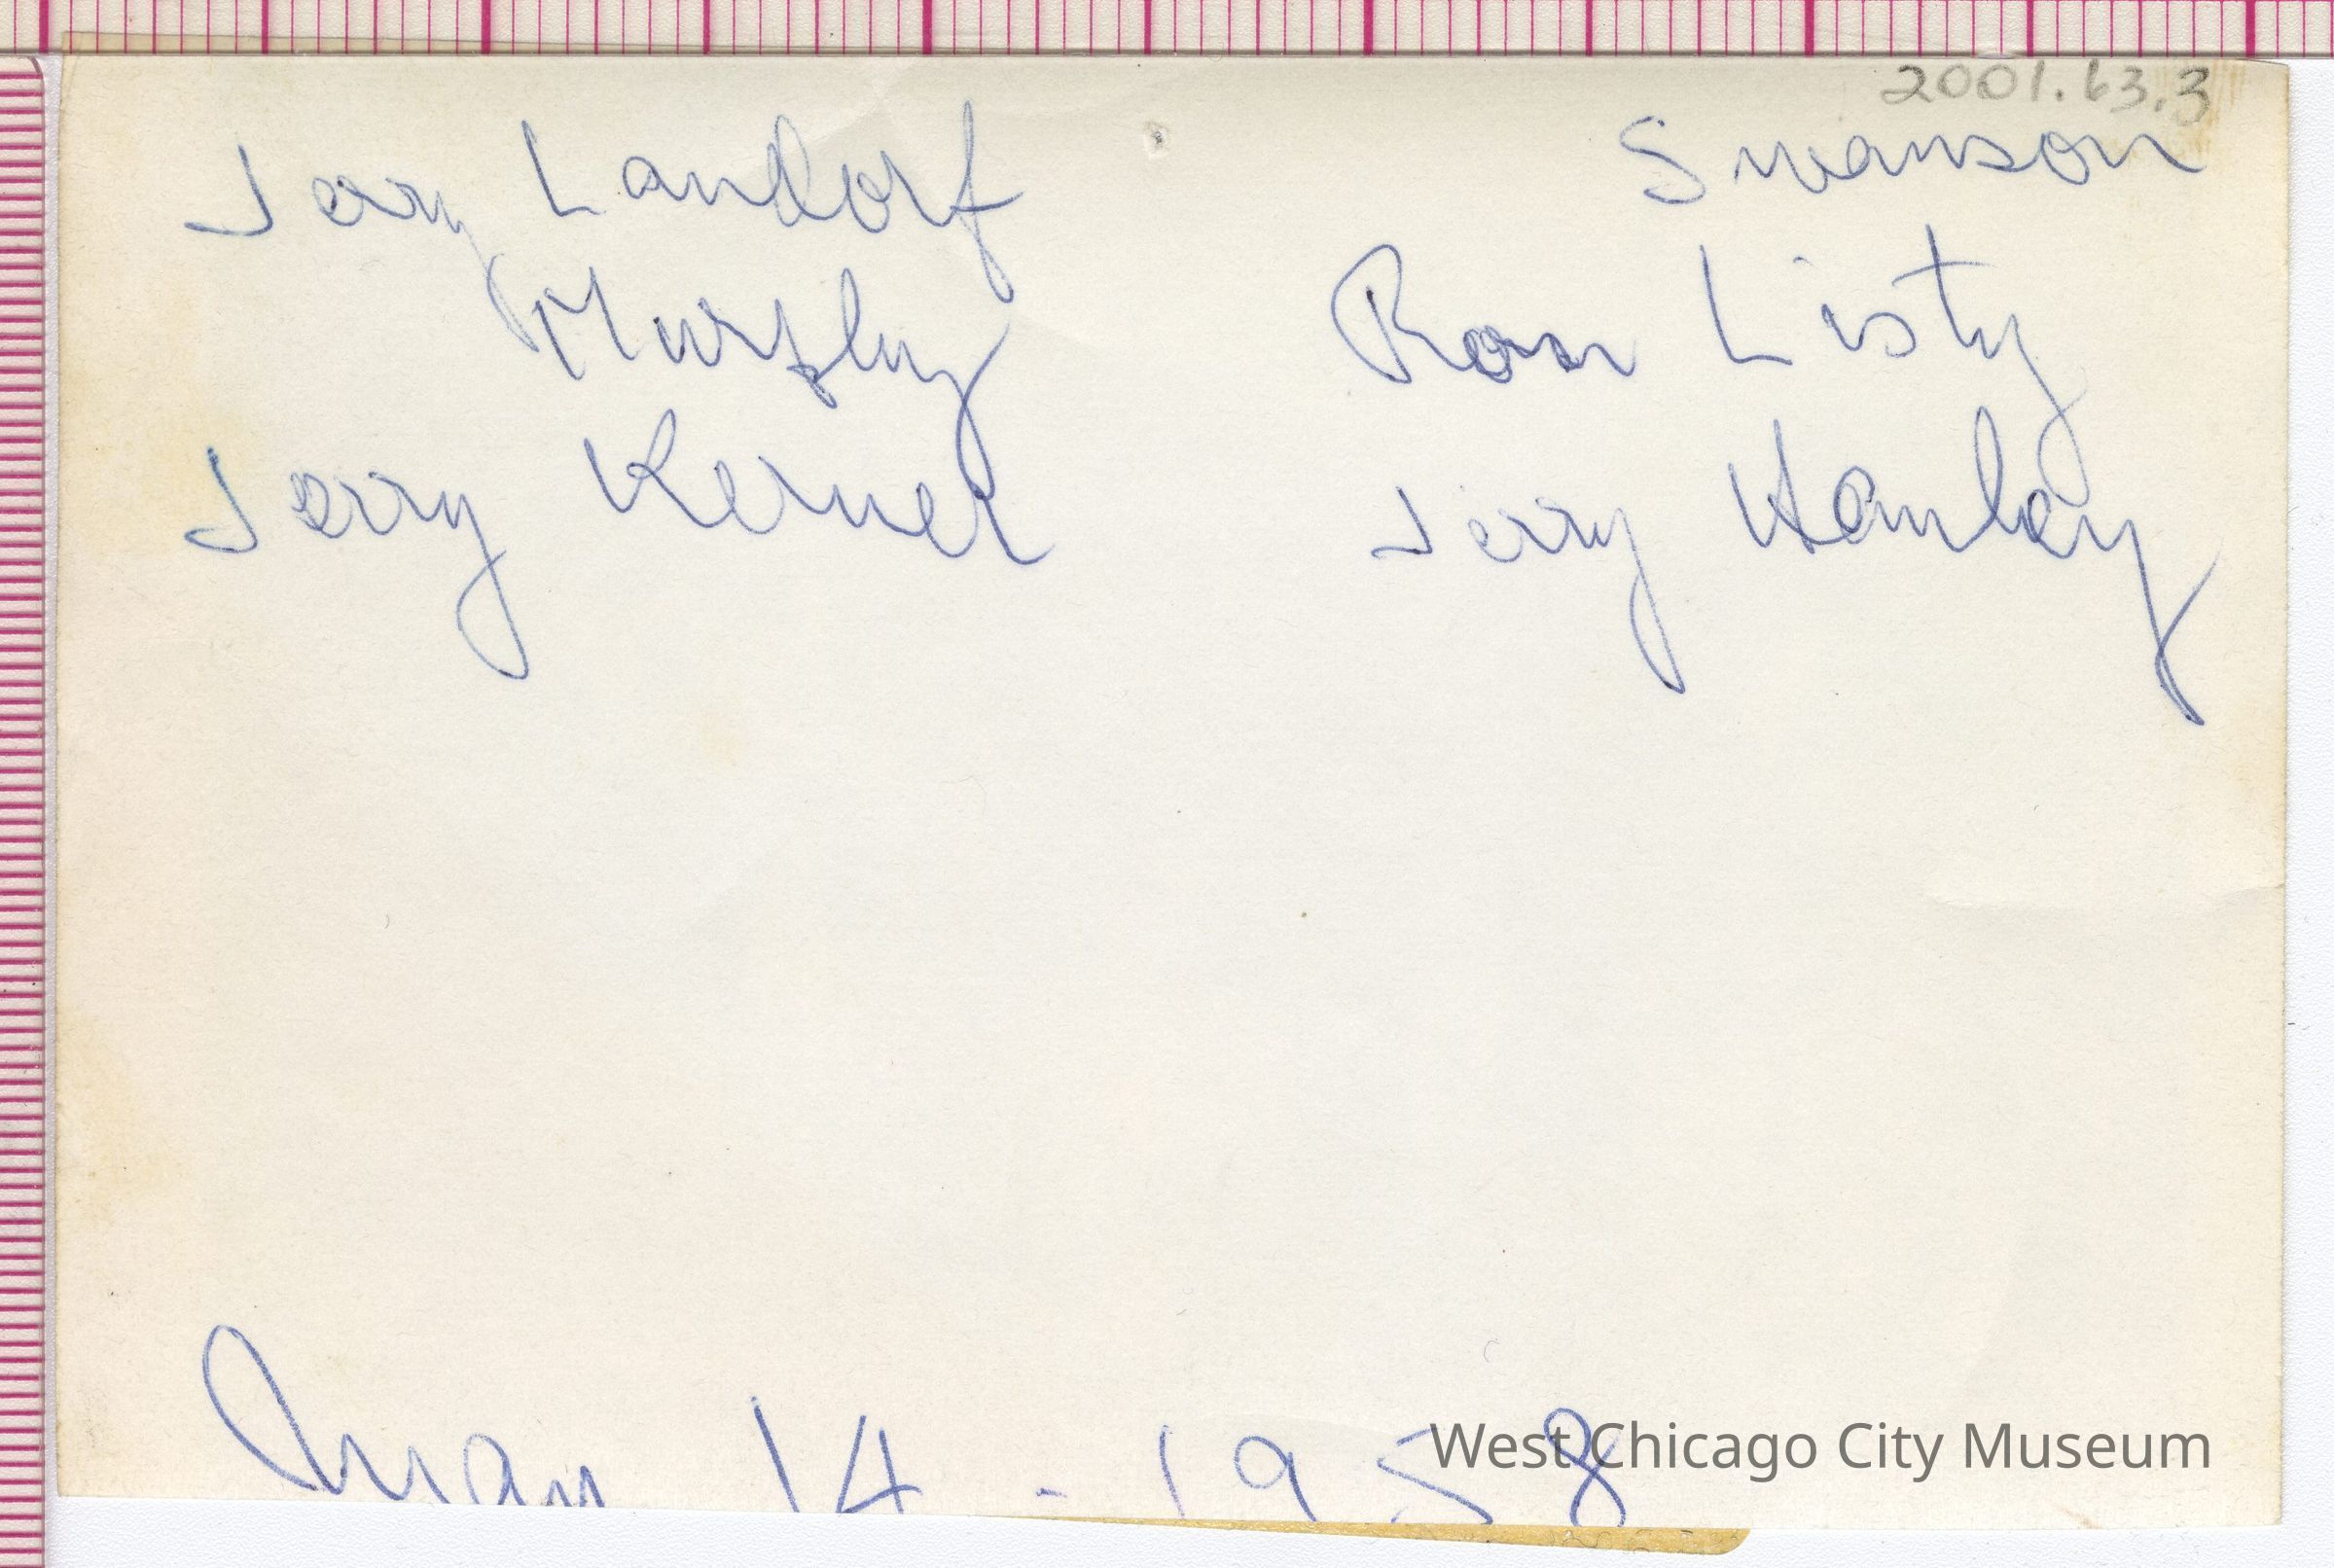 2001.63.3
Jerry Landorf
Swanson
Murphy
Ron Listy
Jerry Kerner
Jerry Hanley
May 14 - 1958
West Chicago City Museum